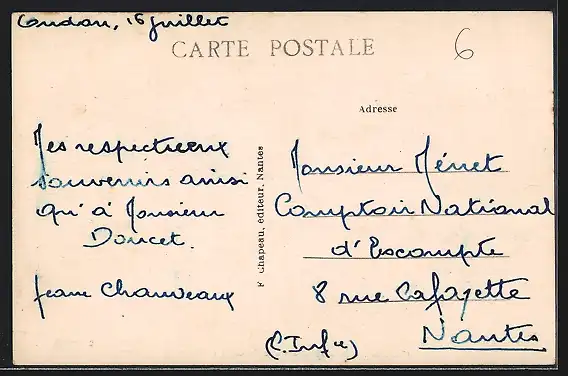 Coudan, 16 Juillet
CARTE POSTALE
6
Adresse
Mes respectueux
souvenirs ainsi
qu'à Monsieur
Doucet.
Jeane Chauveaux
F Chapeau, éditeur, Nantes
Monsieur Ménet
Comptoir National
d'Escompte
8 rue Lafayette
Nantes
(L. Infre)